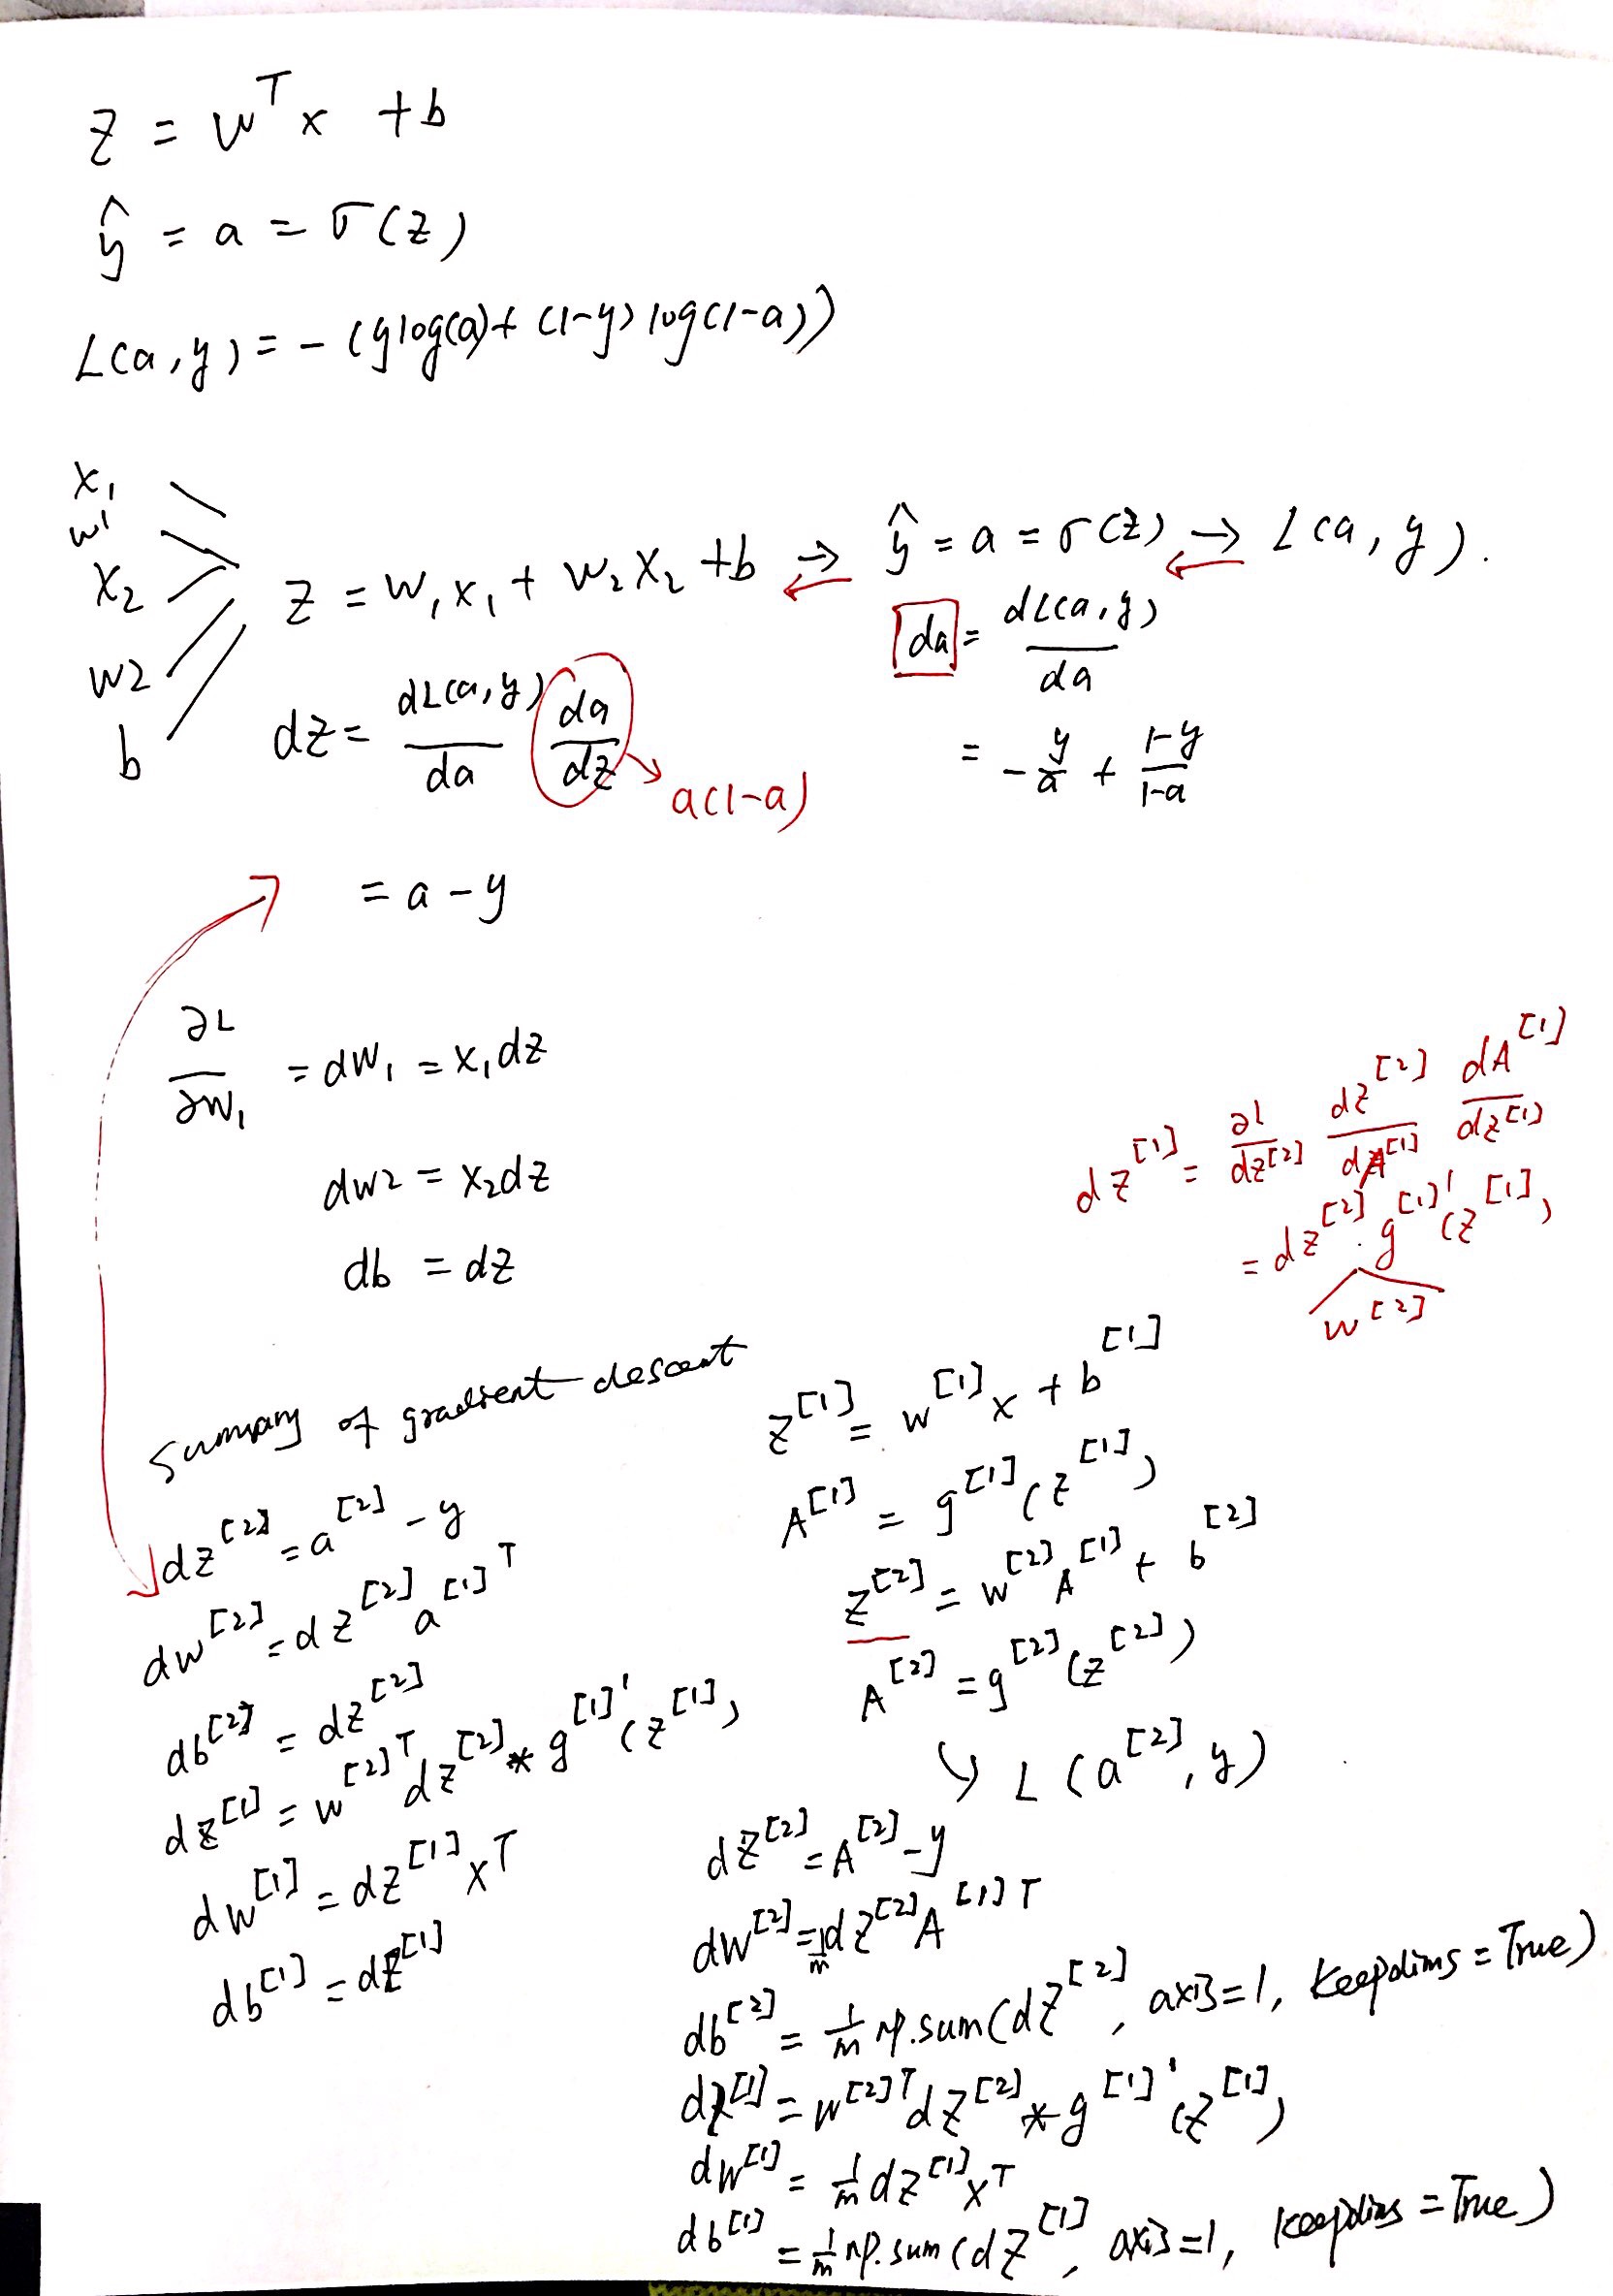 z = w^T x + b
ŷ = a = σ(z)
L(a, y) = - (y log(a) + (1-y) log(1-a))
x₁
w1
x₂
w2
b
z = w₁x₁ + w₂x₂ + b → ŷ = a = σ(z) → L(a, y).
da = dL(a, y) / da
= - y/a + 1-y / 1-a
dz = dL(a, y) / da da / dz
a(1-a)
= a - y
∂L / ∂w₁ = dw₁ = x₁dz
dw2 = x₂dz
db = dz
dz^[1] = ∂L / dz^[2] dz^[2] / dA^[1] dA^[1] / dz^[1]
= dz^[2] · g^[1]'(z^[1])
w^[2]
Summary of gradient descent
dz^[2] = a^[2] - y
dw^[2] = dz^[2] a^[1]T
db^[2] = dz^[2]
dz^[1] = w^[2]T dz^[2] * g^[1]'(z^[1])
dw^[1] = dz^[1] x^T
db^[1] = dz^[1]
z^[1] = w^[1] x + b^[1]
A^[1] = g^[1](z^[1])
z^[2] = w^[2] A^[1] + b^[2]
A^[2] = g^[2](z^[2])
↳ L(a^[2], y)
dZ^[2] = A^[2] - y
dw^[2] = 1/m dZ^[2] A^[1]T
db^[2] = 1/m np.sum(dZ^[2], axis=1, keepdims=True)
dz^[1] = w^[2]T dZ^[2] * g^[1]'(Z^[1])
dw^[1] = 1/m dz^[1] x^T
db^[1] = 1/m np.sum(dZ^[1], axis=1, keepdims=True)